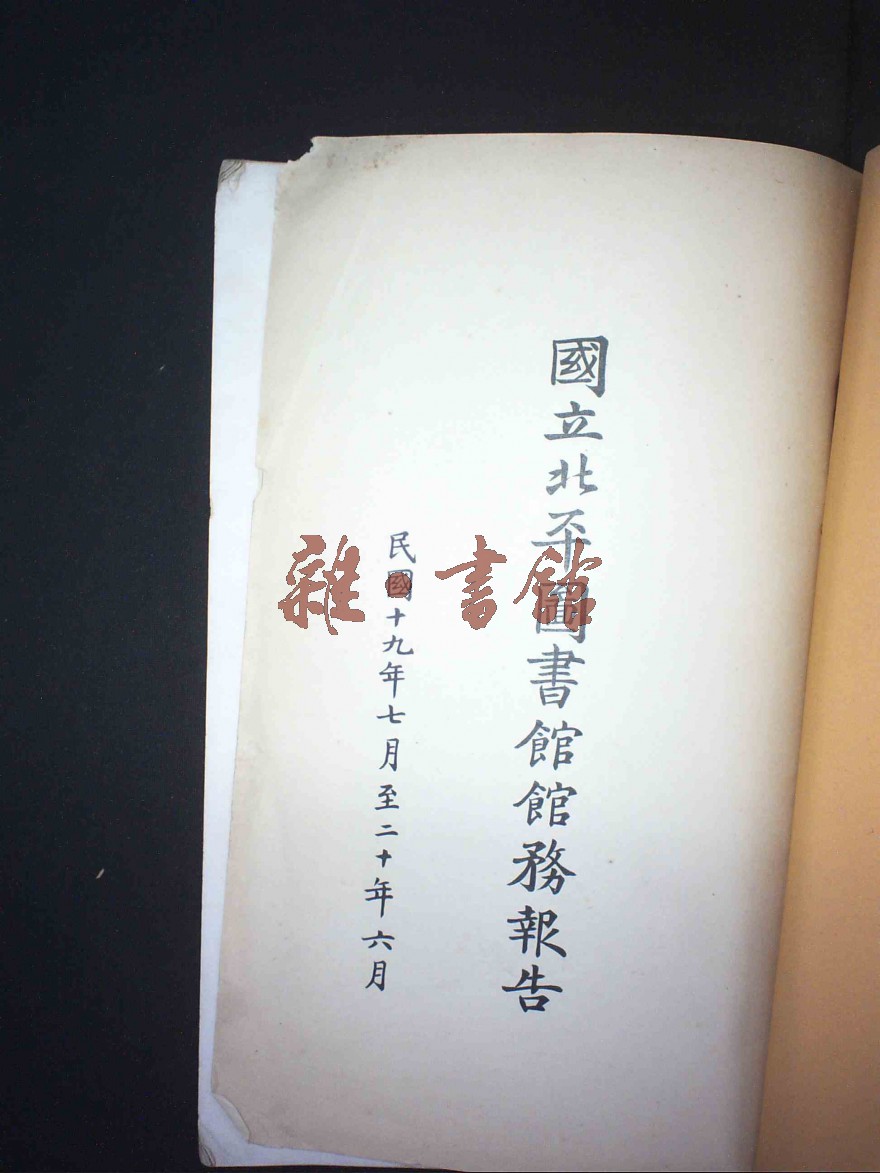 國立北平圖書館館務報告
民國十九年七月至二十年六月
雜書館